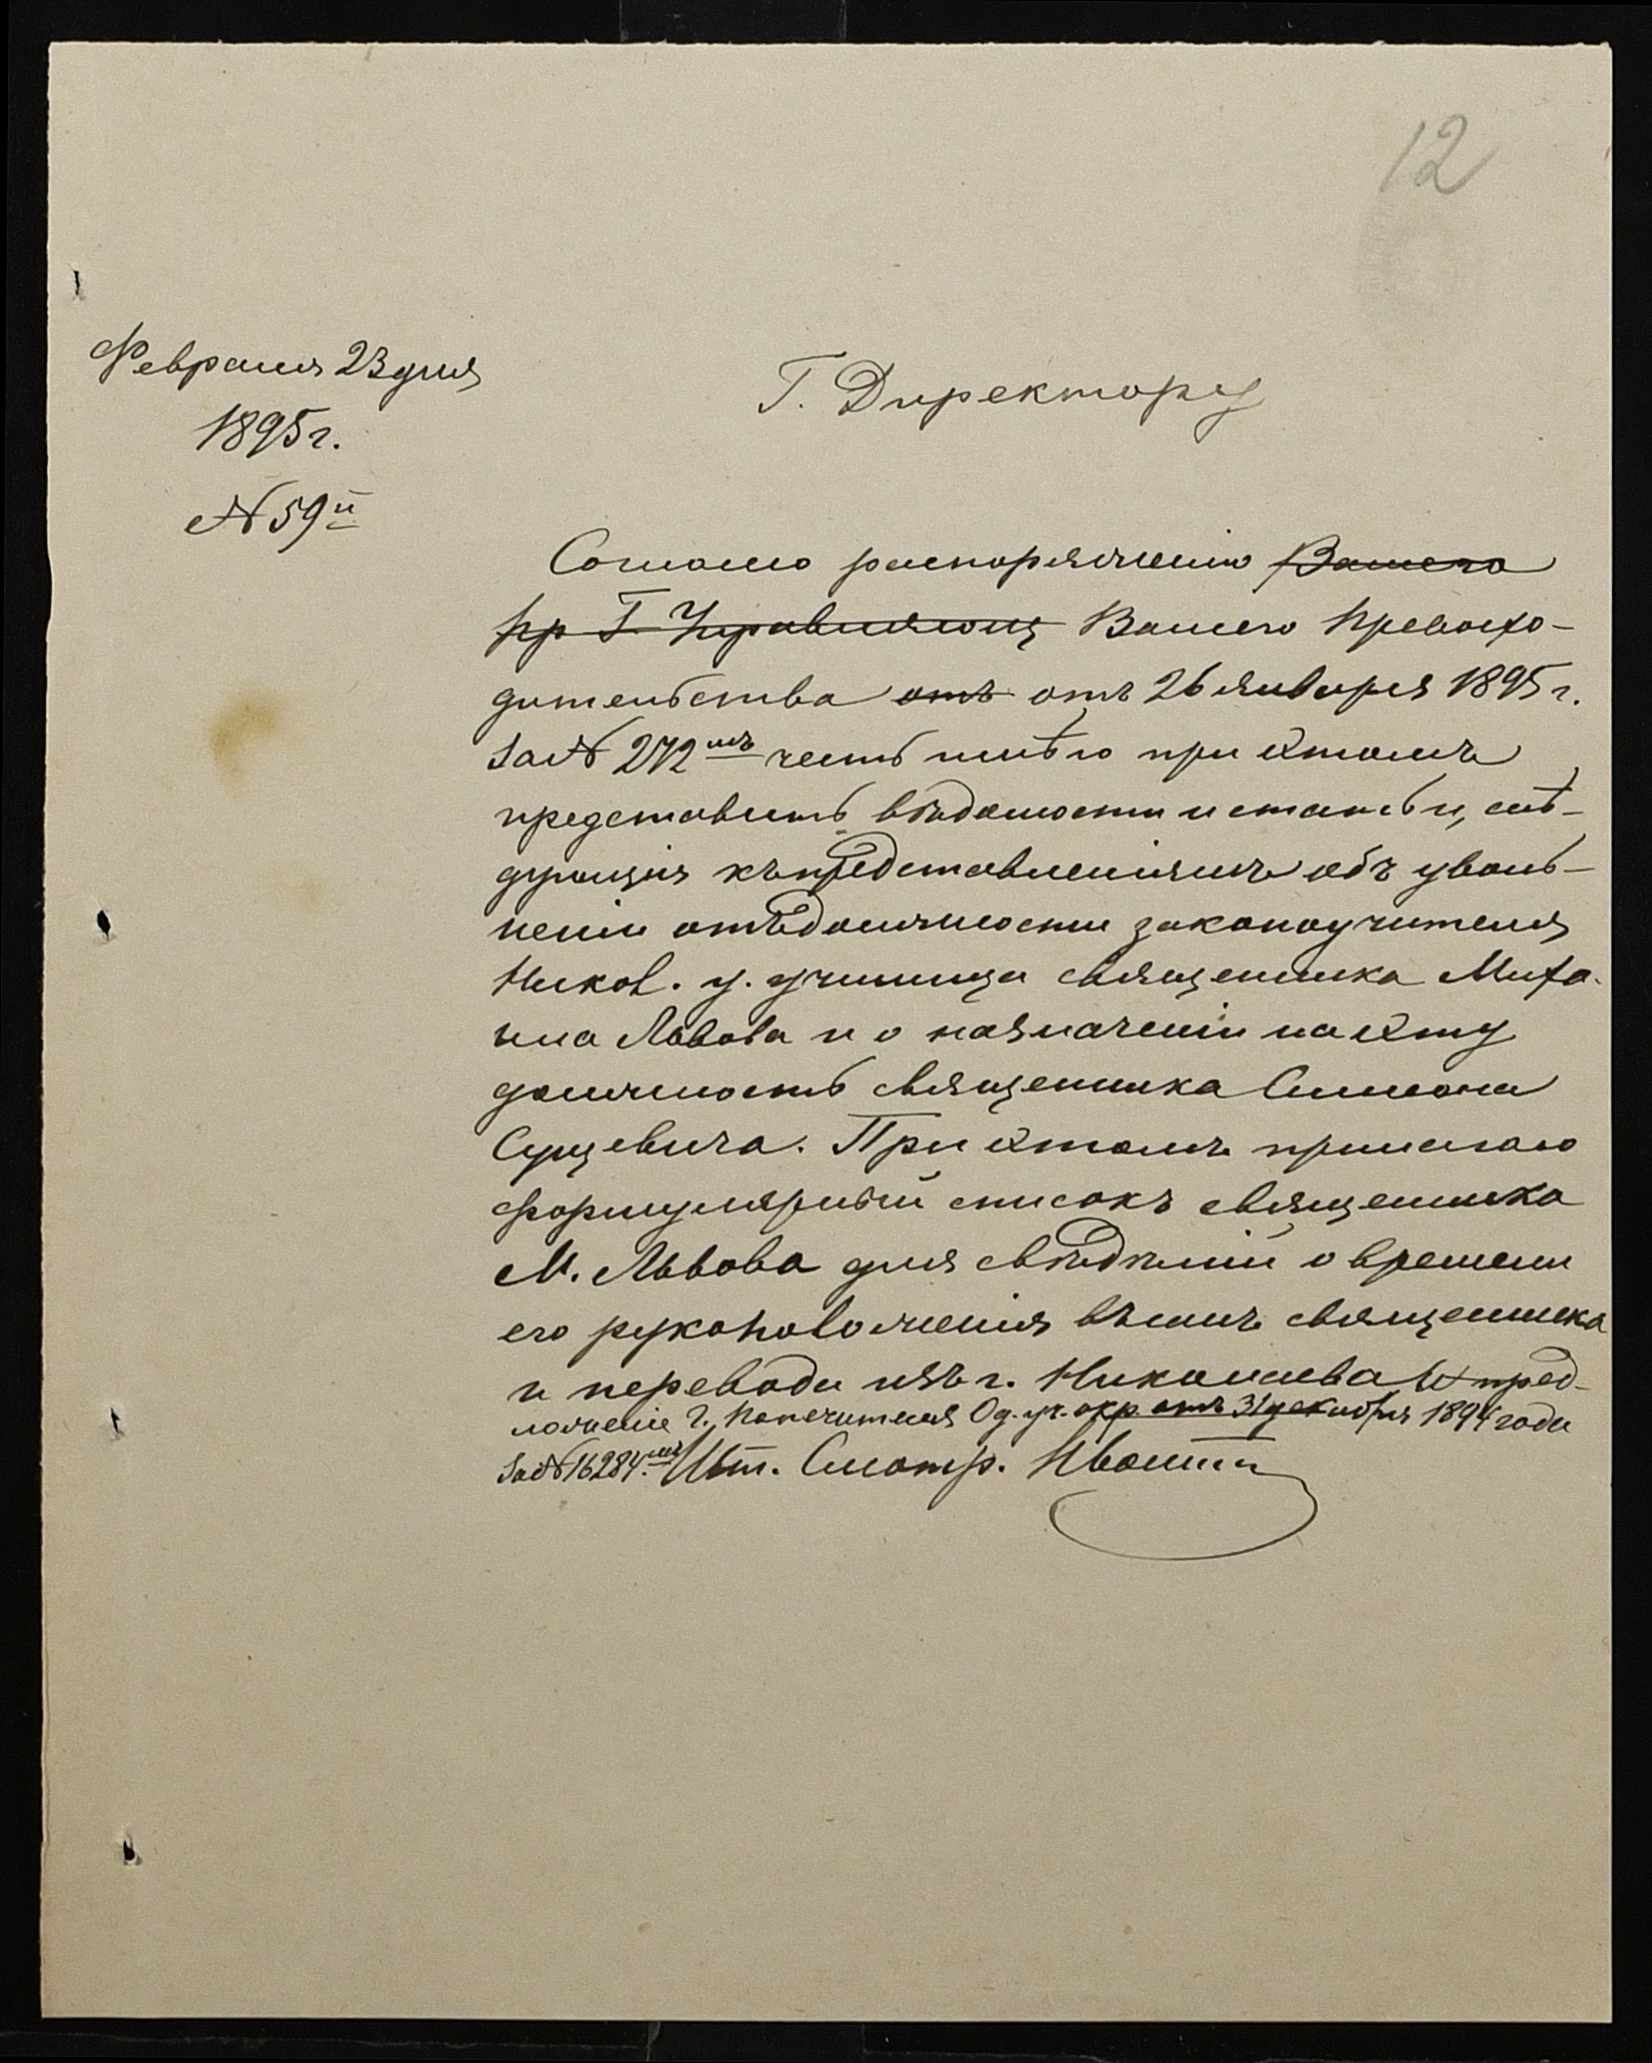 12
Февраля 23 дня
1895 г.
№ 59й
Г. Директору
Согласно распоряженію Вашего
пр Г. Управляющ Вашего Превосхо-
дительства отъ отъ 26 января 1895 г.
за № 272мъ честь имѣю при этомъ
представить вѣдомости и статьи, слѣ-
дующія къ представленіямъ объ уволь-
неніи отъ должности законоучителя
Никол. у. училища священника Миха-
ила Львова и о назначеніи на эту
должность священника Симеона
Сущевича. При этомъ прилагаю
формулярный списокъ священника
М. Львова для свѣдѣній о времени
его рукоположенія въ санъ священника
и перевода изъ г. Николаева и пред-
ложеніе Г. Попечителя Од. уч. окр. отъ 31 декабря 1894 года
за № 16284мъ Шт. Смотр.